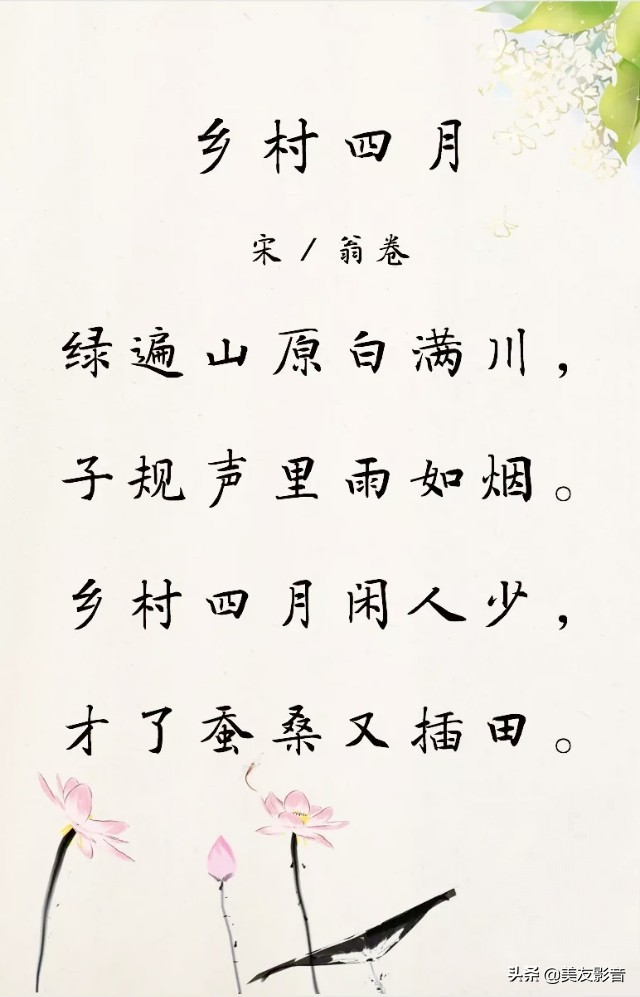 乡村四月
宋/翁卷
绿遍山原白满川，
子规声里雨如烟。
乡村四月闲人少，
才了蚕桑又插田。
头条 @美友影音